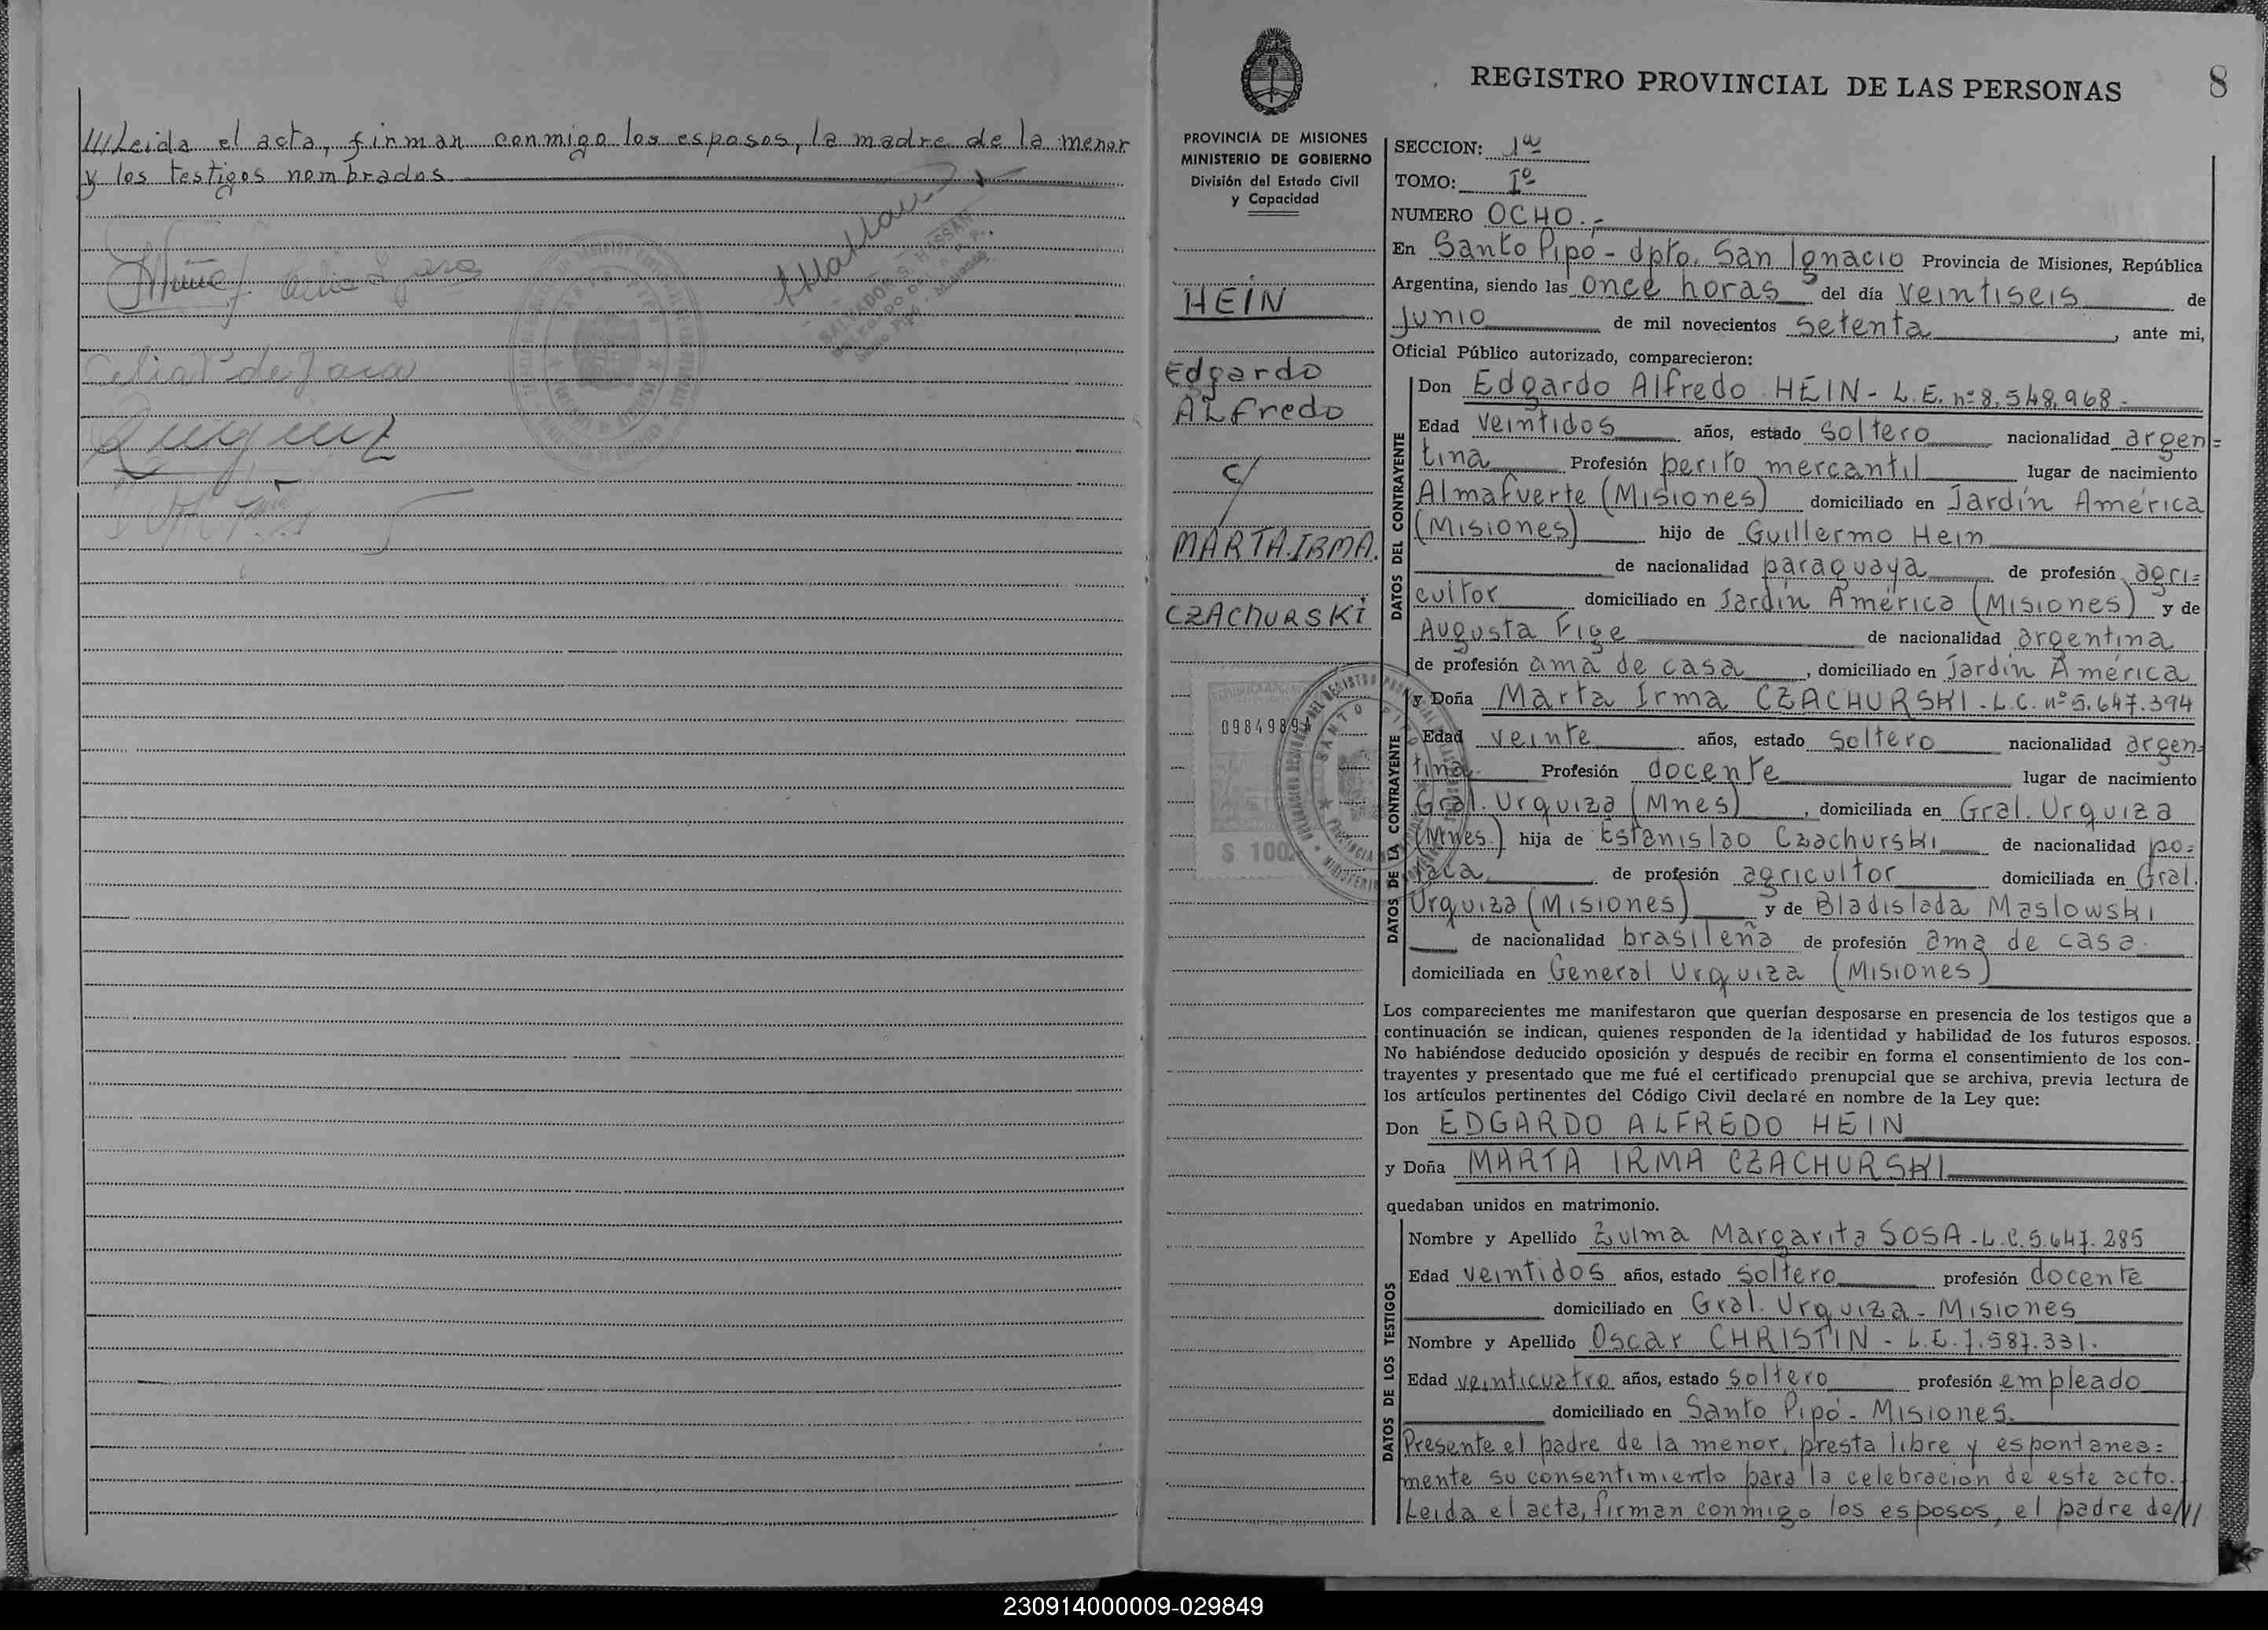 ///Leida el acta, firman conmigo los esposos, la madre de la menor
y los testigos nombrados
Celia V. de Jara
SALVADOR S. HASSAN
REGISTRO PROVINCIAL DE LAS PERSONAS
8
PROVINCIA DE MISIONES
MINISTERIO DE GOBIERNO
División del Estado Civil
y Capacidad
HEIN
Edgardo
ALFredo
c/
MARTA.IRMA.
CZAChURSKi
09849894
$ 100
SECCION: 1ª
TOMO: Iº
NUMERO OCHO.-
En Santo Pipó - dpto. San Ignacio Provincia de Misiones, República
Argentina, siendo las once horas del día veintiseis de
Junio de mil novecientos setenta, ante mi,
Oficial Público autorizado, comparecieron:
DATOS DEL CONTRAYENTE
Don Edgardo Alfredo HEIN - L.E. nº 8.548.968-
Edad veintidos años, estado soltero nacionalidad argen=
tina Profesión perito mercantil lugar de nacimiento
Almafuerte (Misiones) domiciliado en Jardín América
(Misiones) hijo de Guillermo Hein
de nacionalidad paraguaya de profesión agri=
cultor domiciliado en Jardín América (Misiones) y de
Augusta Fige de nacionalidad argentina
de profesión ama de casa, domiciliado en Jardín América
DATOS DE LA CONTRAYENTE
y Doña Marta Irma CZACHURSKI - L.C. nº 5.647.394
Edad veinte años, estado soltero nacionalidad argen=
tina Profesión docente lugar de nacimiento
Gral. Urquiza (Mnes), domiciliada en Gral. Urquiza
(Mnes.) hija de Estanislao Czachurski de nacionalidad po=
laca de profesión agricultor domiciliada en Gral.
Urquiza (Misiones) y de Bladislada Maslowski
de nacionalidad brasileña de profesión ama de casa.
domiciliada en General Urquiza (Misiones)
Los comparecientes me manifestaron que querían desposarse en presencia de los testigos que a
continuación se indican, quienes responden de la identidad y habilidad de los futuros esposos.
No habiéndose deducido oposición y después de recibir en forma el consentimiento de los con-
trayentes y presentado que me fué el certificado prenupcial que se archiva, previa lectura de
los artículos pertinentes del Código Civil declaré en nombre de la Ley que:
Don EDGARDO ALFREDO HEIN
y Doña MARTA IRMA CZACHURSKI
quedaban unidos en matrimonio.
DATOS DE LOS TESTIGOS
Nombre y Apellido Zulma Margarita SOSA - L.C. 5.647.285
Edad veintidos años, estado soltero profesión docente
domiciliado en Gral. Urquiza - Misiones
Nombre y Apellido Oscar CHRISTIN - L.E. 7.587.331.
Edad veinticuatro años, estado soltero profesión empleado
domiciliado en Santo Pipó - Misiones.
Presente el padre de la menor, presta libre y espontanea=
mente su consentimiento para la celebracion de este acto.
Leida el acta, firman conmigo los esposos, el padre de///
230914000009-029849